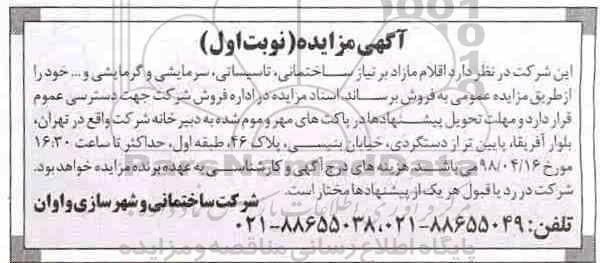 آگهی مزایده (نوبت اول)
این شرکت در نظر دارد اقلام مازاد بر نیاز ساختمانی، تاسیساتی، سرمایشی و گرمایشی و... خود را
از طریق مزایده عمومی به فروش برساند. اسناد مزایده در اداره فروش شرکت جهت دسترسی عموم
قرار دارد و مهلت تحویل پیشنهادها در پاکت های مهر و موم شده به دبیرخانه شرکت واقع در تهران،
بلوار آفریقا، پایین تر از دستگردی، خیابان بنیسی، پلاک ۴۶، طبقه اول، حداکثر تا ساعت ۱۶:۳۰
مورخ ۹۸/۰۴/۱۶ می باشد. هزینه های درج آگهی و کارشناسی به عهده برنده مزایده خواهد بود.
شرکت در رد یا قبول هر یک از پیشنهادها مختار است.
شرکت ساختمانی و شهرسازی واوان
تلفن: ۸۸۶۵۵۰۴۹-۰۲۱، ۸۸۶۵۵۰۳۸-۰۲۱
پایگاه اطلاع رسانی مناقصه و مزایده